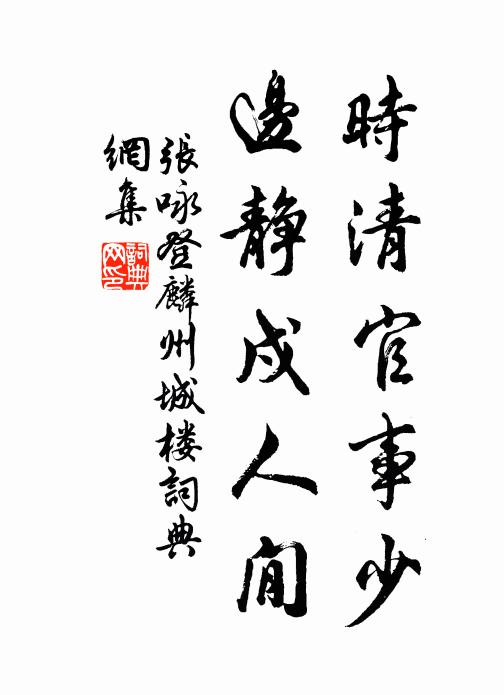 時清官事少
邊靜戍人閒
張咏登麟州城楼詞典
網集
詞典
网印